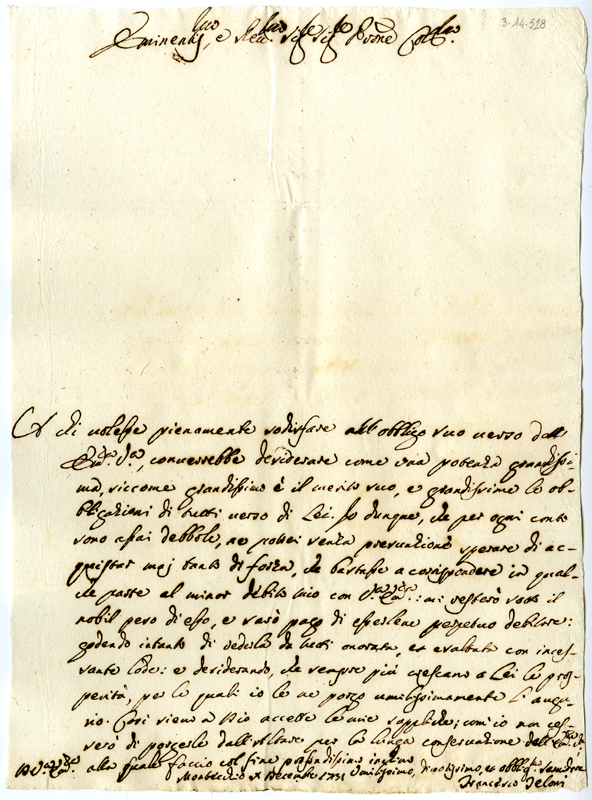 3-14-528
Eminentis.mo, e Rev.mo Sig.re Sig.re Prone Col.mo
A chi volesse pienamente sodisfare all'obbligo suo verso dell'
Em.za V.ra, converrebbe desiderare come una potenza grandissi-
ma, siccome grandissimo è il merito suo, e grandissime le ob-
bligazioni di tutti verso di Lei. Io dunque, che per ogni conto
sono assai debbole, ne potrei senza presunzione sperare di ac-
quistar maj tanto di forza, che bastasse a corrispondere in qual-
che parte al minor debito mio con V.ra Em.za: mi resterò sotto il
nobil peso di esso, e sarò pago di essere perpetuo debitore:
godendo intanto di vederla da tutti onorata, et esaltata con inces-
sante lode: e desiderando, che sempre più crescano a Lei le pros-
perità, per le quali io le ne porgo umilissimamente l'augu-
rio. Così sieno a Dio accette le mie suppliche; com'io non ces-
serò di porgerle dall'altare per la lunga conservazione dell'Em.za V.ra
alla quale faccio col fine profondissimo inchino
Di V.ra Em.za
Montecchio X Decembre 1731 Umilissimo, Divotissimo, et obblig.mo Servidore
Francesco